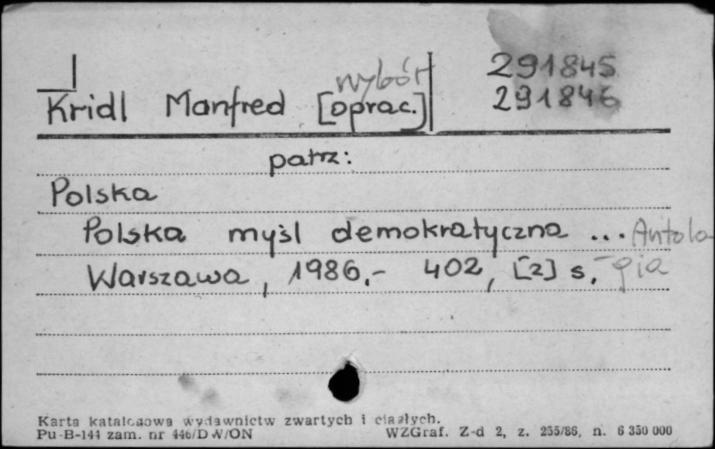 wybór 291845
Kridl Manfred [oprac.] 291846
patrz:
Polska
Polska myśl demokratyczna ... Antolo
Warszawa, 1986.- 402, [2] s. gia
Karta katalogowa wydawnictw zwartych i ciągłych.
Pu-B-144 zam. nr 446/DW/ON WZGraf. Z-d 2, z. 255/86, n. 6 350 000